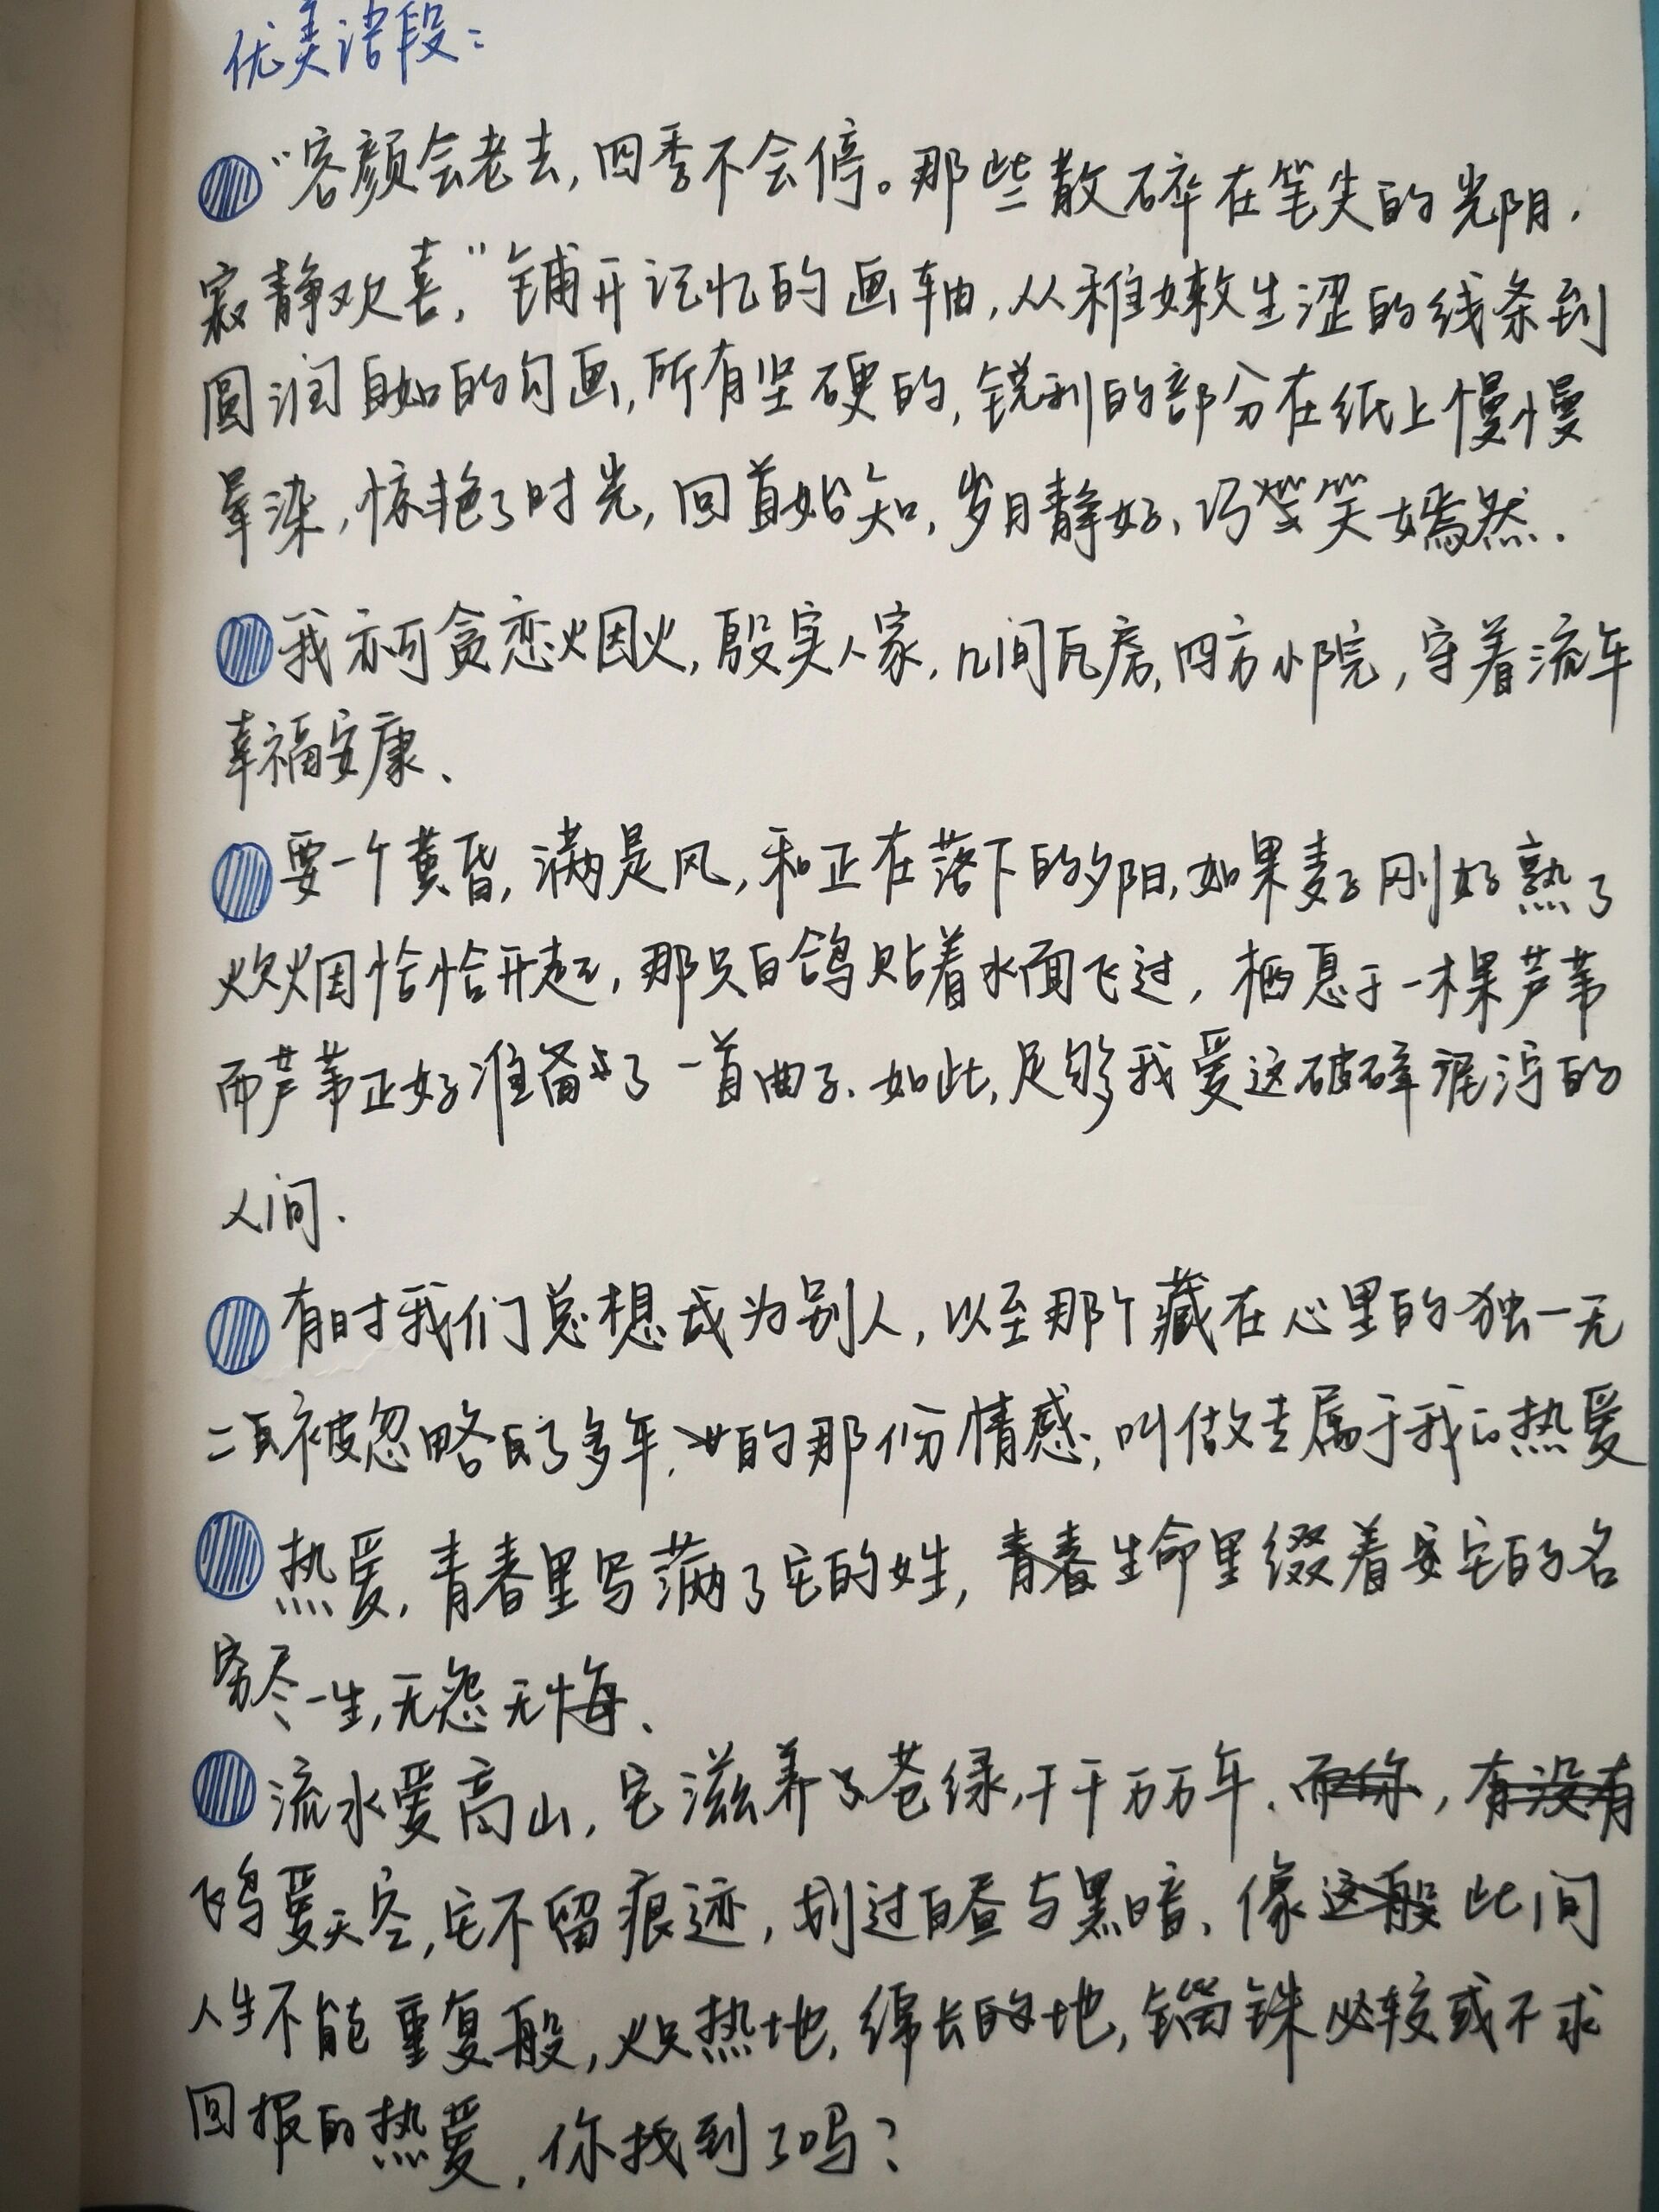 优美语段：
“容颜会老去，四季不会停。那些散碎在笔尖的光阴，
寂静欢喜，”铺开记忆的画轴，从稚嫩生涩的线条到
圆润自如的勾画，所有坚硬的，锐利的部分在纸上慢慢
晕染，惊艳了时光，回首始知，岁月静好、巧笑嫣然.
我亦可贪恋烟火，殷实人家，几间瓦房，四方小院，守着流年
幸福安康、
要一个黄昏，满是风，和正在落下的夕阳，如果麦子刚好熟了
炊烟恰恰升起，那只白鸽贴着水面飞过，栖息于一棵芦苇
而芦苇正好准备了一首曲子、如此，足够我爱这破碎泥泞的
人间.
有时我们总想成为别人，以至那个藏在心里的独一无
二真被忽略了多年，的那份情感，叫做属于我的热爱
热爱，青春里写满了它的姓，生命里缀着它的名
穷尽一生，无怨无悔、
流水爱高山，它滋养了苍绿，千千万万年、，
飞鸟爱天空，它不留痕迹，划过白昼与黑暗、像此间
人生不能重复般，炽热地，绵长地，锱铢必较或不求
回报的热爱，你找到了吗？